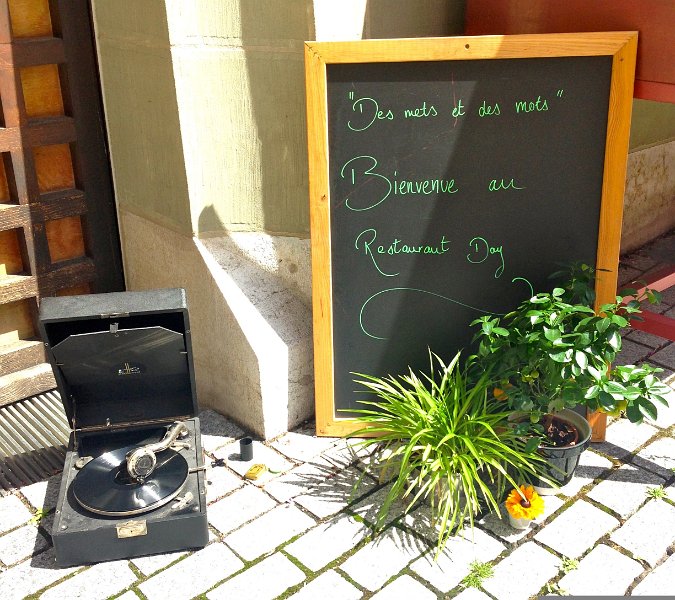 "Des mets et des mots"
Bienvenue au
Restaurant Day